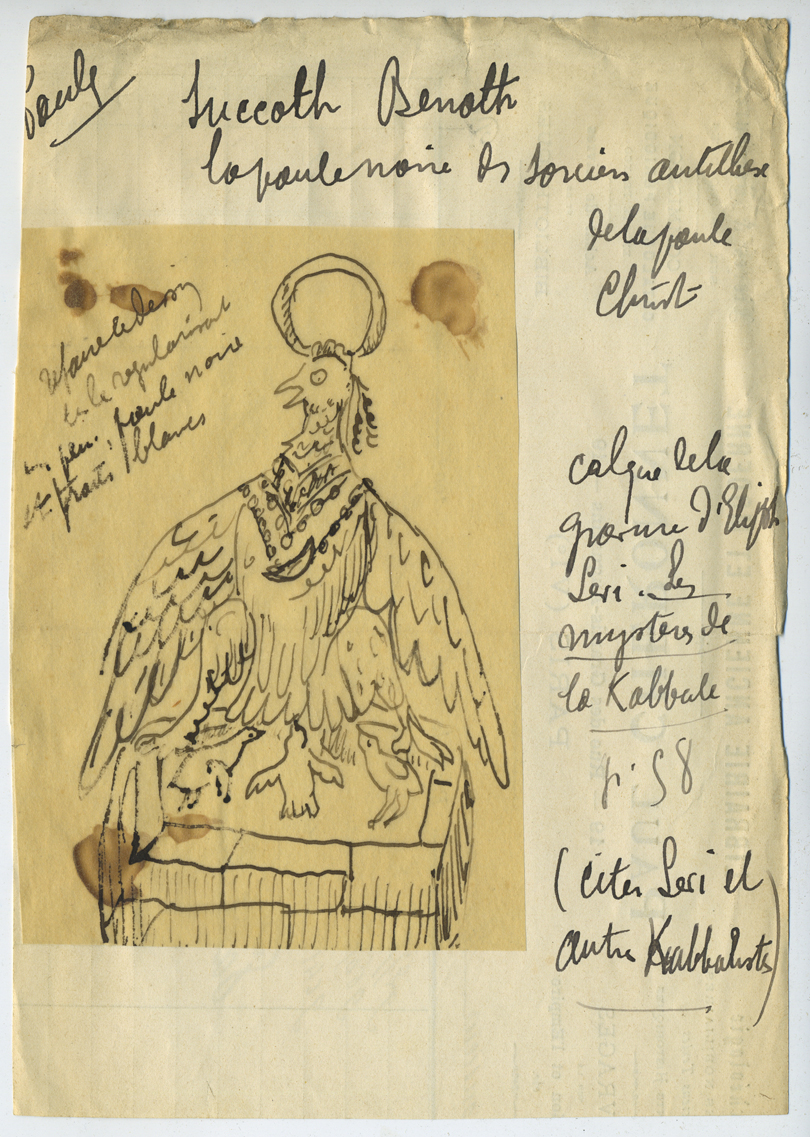 Poule
Succoth Benoth
la poule noire des sorciers antithèse
de la poule
Christ
refaire le dessin
en le regularisant
un peu, poule noire
et traits blancs
calque de la
gravure d'Eliphas
Levi. Les
mystères de
la Kabbale
p. 58
(citer Levi et
autres Kabbalistes)